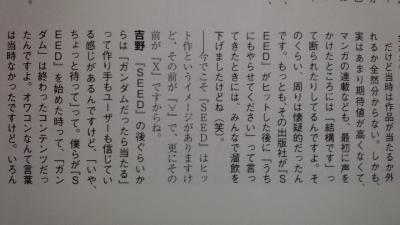 だけど当時は作品が当たるか外
れるか全然分からない。しかも、
実はあまり期待値が高くなくて、
マンガの連載なども、最初に声を
かけたところには「結構です」っ
て断られたりしてるんですよ。そ
のくらい、周りは懐疑的だったん
です。もっとも、その出版社が『S
EED』がヒットした後に「うち
にもやらせてください」って言っ
てきたときには、みんなで溜飲を
下げましたけどね（笑）。
――今でこそ『SEED』はヒッ
ト作というイメージがありますけ
ど、その前が『∀』で、更にその
前が『X』ですからね。
吉野 『SEED』の後ぐらいか
らは「ガンダムだったら当たる」
って作り手もユーザーも信じてい
る感じがあるんですけど、「いや、
ちょっと待って」って。僕らが『S
EED』を始めた時って、『ガン
ダム』は終わったコンテンツだっ
たんですよ。オワコンなんて言葉
は当時なかったですけど。いろん